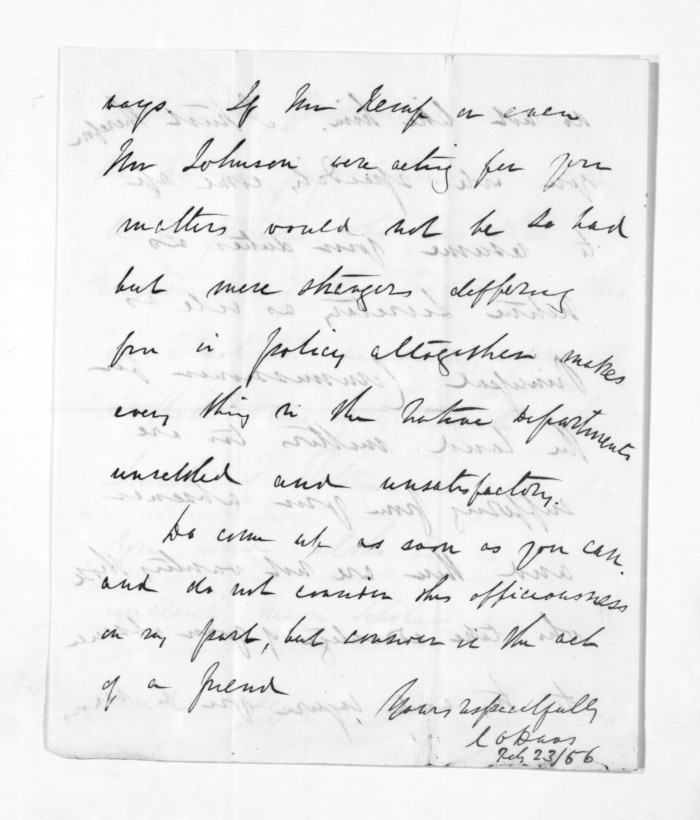 ways. If Mr Kemp or even
Mr Johnson were acting for you
matters would not be so bad
but mere strangers differing
from in policy altogether makes
every thing in the native Departments
unsettled and unsatisfactory.
Do come up as soon as you can.
and do not consider this officiousness
on my part, but consider it the act
of a friend
Yours respectfully
C O Davis
Feby 23/56